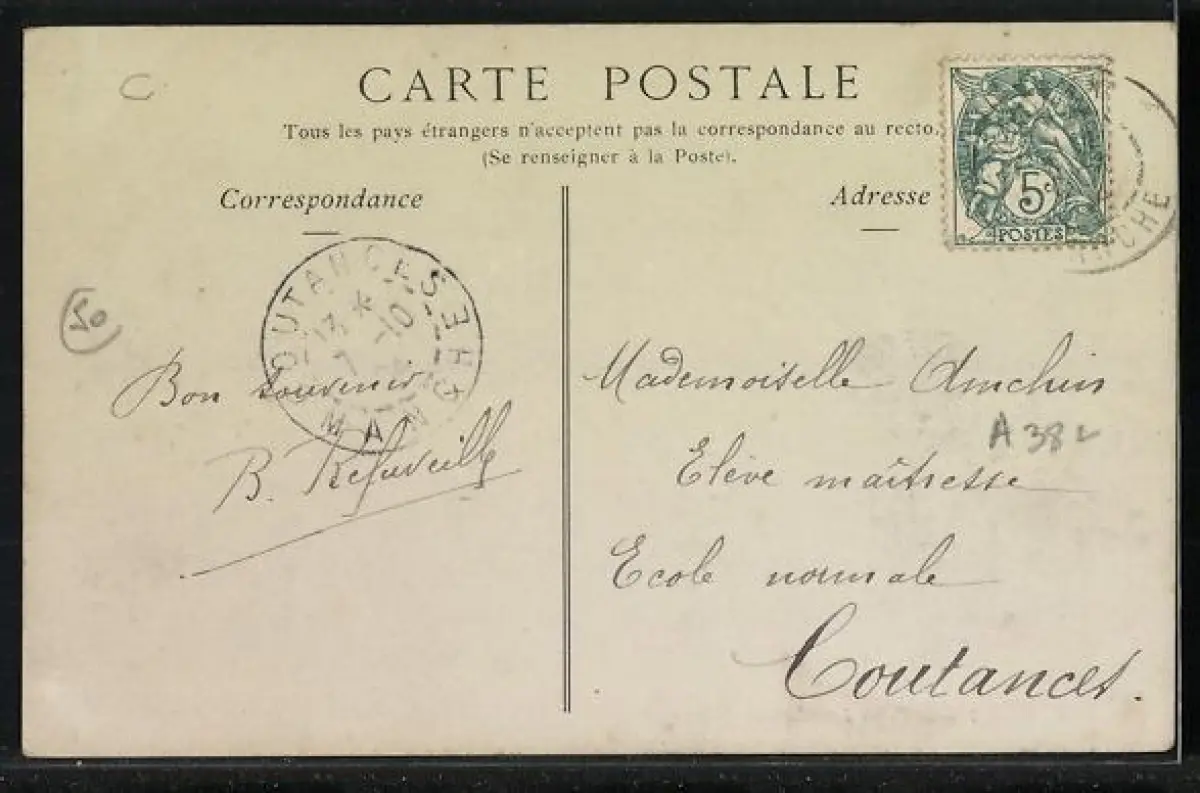 C
CARTE POSTALE
Tous les pays étrangers n'acceptent pas la correspondance au recto.
(Se renseigner à la Poste).
Correspondance
Adresse
5c
POSTES
COUTANCES
MANCHE
13 *
7 -10
50
Bon souvenir
B.
Mademoiselle
A 38
Elève maîtresse
Ecole normale
Coutances.